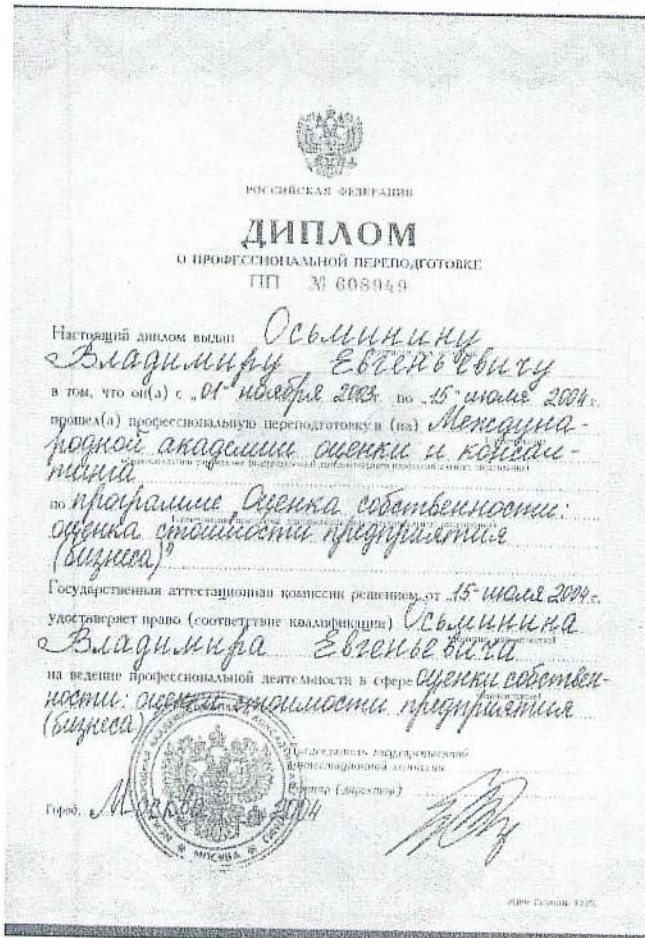 РОССИЙСКАЯ ФЕДЕРАЦИЯ
ДИПЛОМ
О ПРОФЕССИОНАЛЬНОЙ ПЕРЕПОДГОТОВКЕ
ПП № 608949
Настоящий диплом выдан Осьминину
Владимиру Евгеньевичу
в том, что он(а) с „01" ноября 2003г. по „15" июля 2004г.
прошел(а) профессиональную переподготовку в (на) Междуна-
родной академии оценки и консал-
тинга
по программе „Оценка собственности:
оценка стоимости предприятия
(бизнеса)"
Государственная аттестационная комиссия решением от „15" июля 2004г.
удостоверяет право (соответствие квалификации) Осьминина
Владимира Евгеньевича
на ведение профессиональной деятельности в сфере оценки собствен-
ности: оценки стоимости предприятия
(бизнеса)
Председатель государственной
аттестационной комиссии
Ректор (директор)
Город Москва 2004
МОСКВА